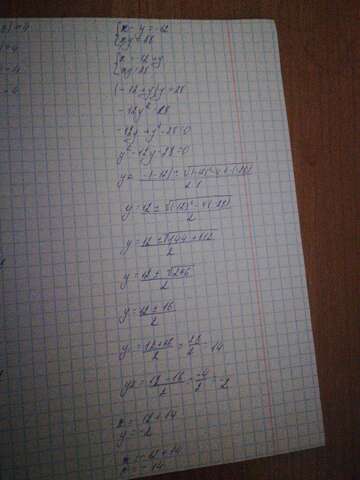 x - y = -12
xy = 28
x = -12 + y
xy = 28
(-12 + y)y = 28
-12y² = 28
-12y + y² - 28 = 0
y² - 12y - 28 = 0
y = -(-12) ± √(-12)² - 4 · 1 · (-28) / 2 · 1
y = 12 ± √(-12)² - 4(-28) / 2
y = 12 ± √144 + 112 / 2
y = 12 ± √256 / 2
y = 12 ± 16 / 2
y = 12 + 16 / 2 = 28 / 2 = 14
y2 = 12 - 16 / 2 = -4 / 2 = -2
x = -12 + 14
y = -2
x = -12 + 14
x = -14